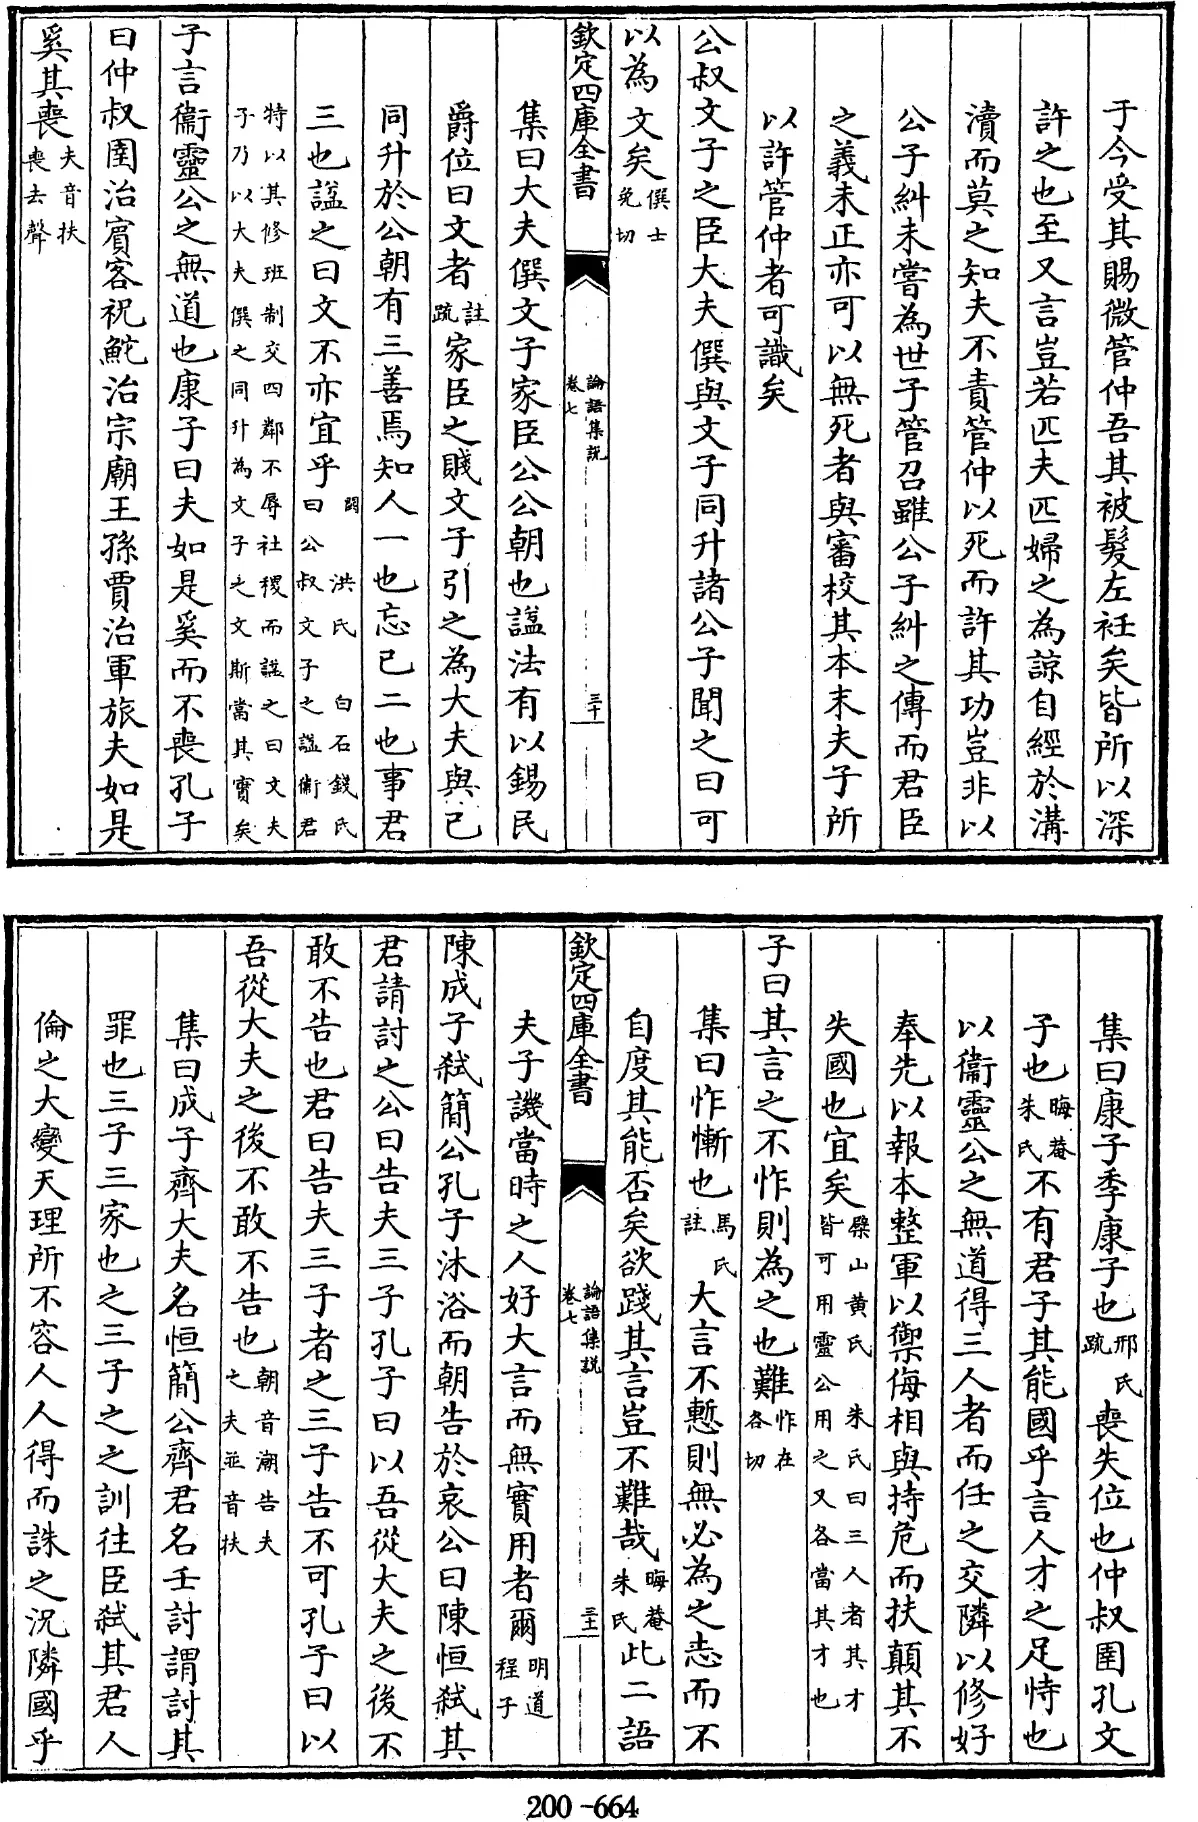 于今受其賜微管仲吾其被髮左衽矣皆所以深
許之也至又言豈若匹夫匹婦之為諒自經於溝
瀆而莫之知夫不責管仲以死而許其功豈非以
公子糾未嘗為世子管召雖公子糾之傳而君臣
之義未正亦可以無死者與審校其本末夫子所
以許管仲者可識矣
公叔文子之臣大夫僎與文子同升諸公子聞之曰可
以為文矣僎士免切
欽定四庫全書
論語集説
卷七
三十
集曰大夫僎文子家臣公公朝也諡法有以錫民
爵位曰文者註疏家臣之賤文子引之為大夫與己
同升於公朝有三善焉知人一也忘己二也事君
三也諡之曰文不亦宜乎閼洪氏白石錢氏曰公叔文子之諡衛君
特以其修班制交四鄰不辱社稷而諡之曰文夫子乃以大夫僎之同升為文子之文斯當其實矣
子言衞靈公之無道也康子曰夫如是奚而不喪孔子
曰仲叔圉治賓客祝鮀治宗廟王孫賈治軍旅夫如是
奚其喪夫音扶喪去聲
集曰康子季康子也邢氏疏喪失位也仲叔圉孔文
子也晦菴朱氏不有君子其能國乎言人才之足恃也
以衞靈公之無道得三人者而任之交隣以修好
奉先以報本整軍以禦侮相與持危而扶顛其不
失國也宜矣檗山黄氏朱氏曰三人者其才皆可用靈公用之又各當其才也
子曰其言之不怍則為之也難怍在各切
集曰怍慚也馬氏註大言不慙則無必為之志而不
自度其能否矣欲踐其言豈不難哉晦菴朱氏此二語
欽定四庫全書
論語集説
卷七
三十一
夫子譏當時之人好大言而無實用者爾明道程子
陳成子弑簡公孔子沐浴而朝告於哀公曰陳恒弑其
君請討之公曰告夫三子孔子曰以吾從大夫之後不
敢不告也君曰告夫三子者之三子告不可孔子曰以
吾從大夫之後不敢不告也朝音潮告夫之夫並音扶
集曰成子齊大夫名恒簡公齊君名壬討謂討其
罪也三子三家也之三子之之訓往臣弑其君人
倫之大變天理所不容人人得而誅之況隣國乎
200-664